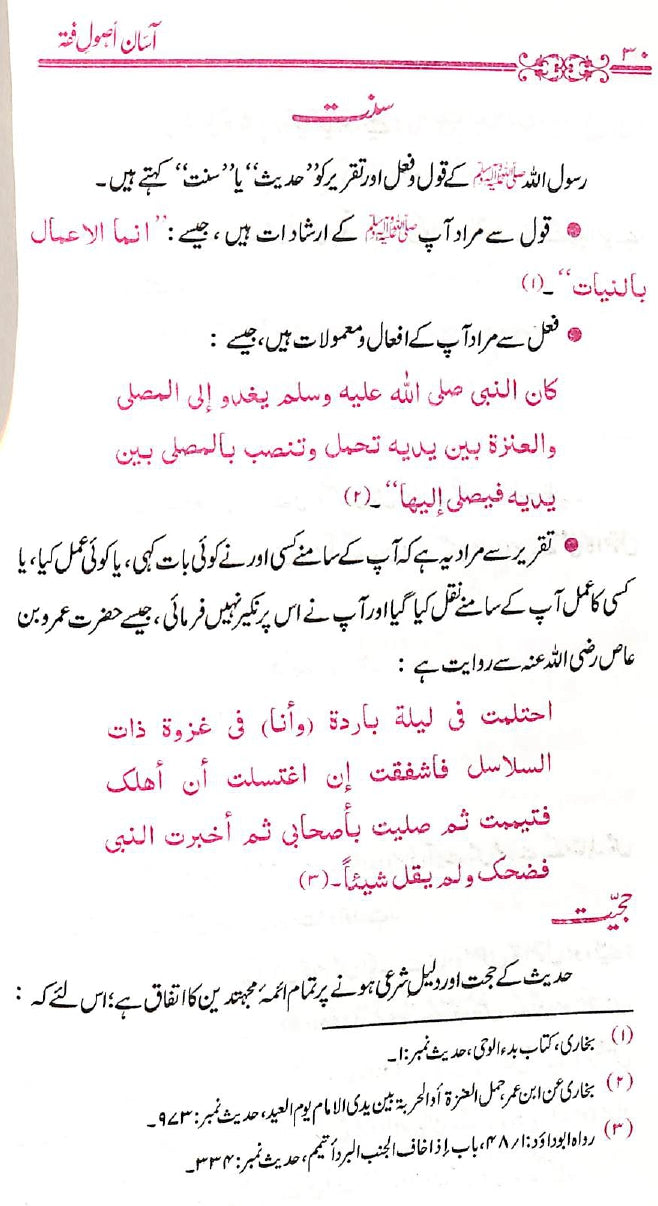 ۳۰
آسان اُصولِ فقہ
سنت
رسول اللہ ﷺ کے قول و فعل اور تقریر کو ”حدیث“ یا ”سنت“ کہتے ہیں ۔
● قول سے مراد آپ ﷺ کے ارشادات ہیں ، جیسے : ”انما الاعمال
بالنیات“ ۔(۱)
● فعل سے مراد آپ کے افعال و معمولات ہیں، جیسے :
كان النبى صلى الله عليه وسلم يغدو إلى المصلى
والعنزة بين يديه تحمل وتنصب بالمصلى بين
يديه فيصلى إليها“ ۔(۲)
● تقریر سے مراد یہ ہے کہ آپ کے سامنے کسی اور نے کوئی بات کہی ، یا کوئی عمل کیا ، یا
کسی کا عمل آپ کے سامنے نقل کیا گیا اور آپ نے اس پر نکیر نہیں فرمائی ، جیسے حضرت عمرو بن
عاص رضی اللہ عنہ سے روایت ہے :
احتلمت فى ليلة باردة (وأنا) فى غزوة ذات
السلاسل فاشفقت إن اغتسلت أن أهلک
فتيممت ثم صليت بأصحابى ثم أخبرت النبى
فضحک ولم يقل شيئاً۔(۳)
حجیّت
حدیث کے حجت اور دلیلِ شرعی ہونے پر تمام ائمۂ مجتہدین کا اتفاق ہے ؛ اس لئے کہ :
(۱) بخاری ، کتاب بدء الوحی ، حدیث نمبر : ۱۔
(۲) بخاری عن ابن عمر ،حمل العنزة أو الحربة بین یدی الامام یوم العید ، حدیث نمبر : ۹۷۳ ۔
(۳) رواہ ابوداؤد : ۱/ ۴۸ ، باب إذا خاف الجنب البرد أتیمم ، حدیث نمبر : ۳۳۴ ۔